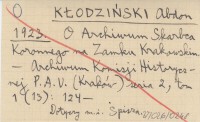 O KŁODZIŃSKI Abdon
1923. O Archiwum Skarbca
Koronnego na Zamku Krakowskim
— Archiwum Komisji Historycz-
nej P.A.U. (Kraków) seria 2, tom
1 (13) : 124—
Dotyczy m.i. Spisza